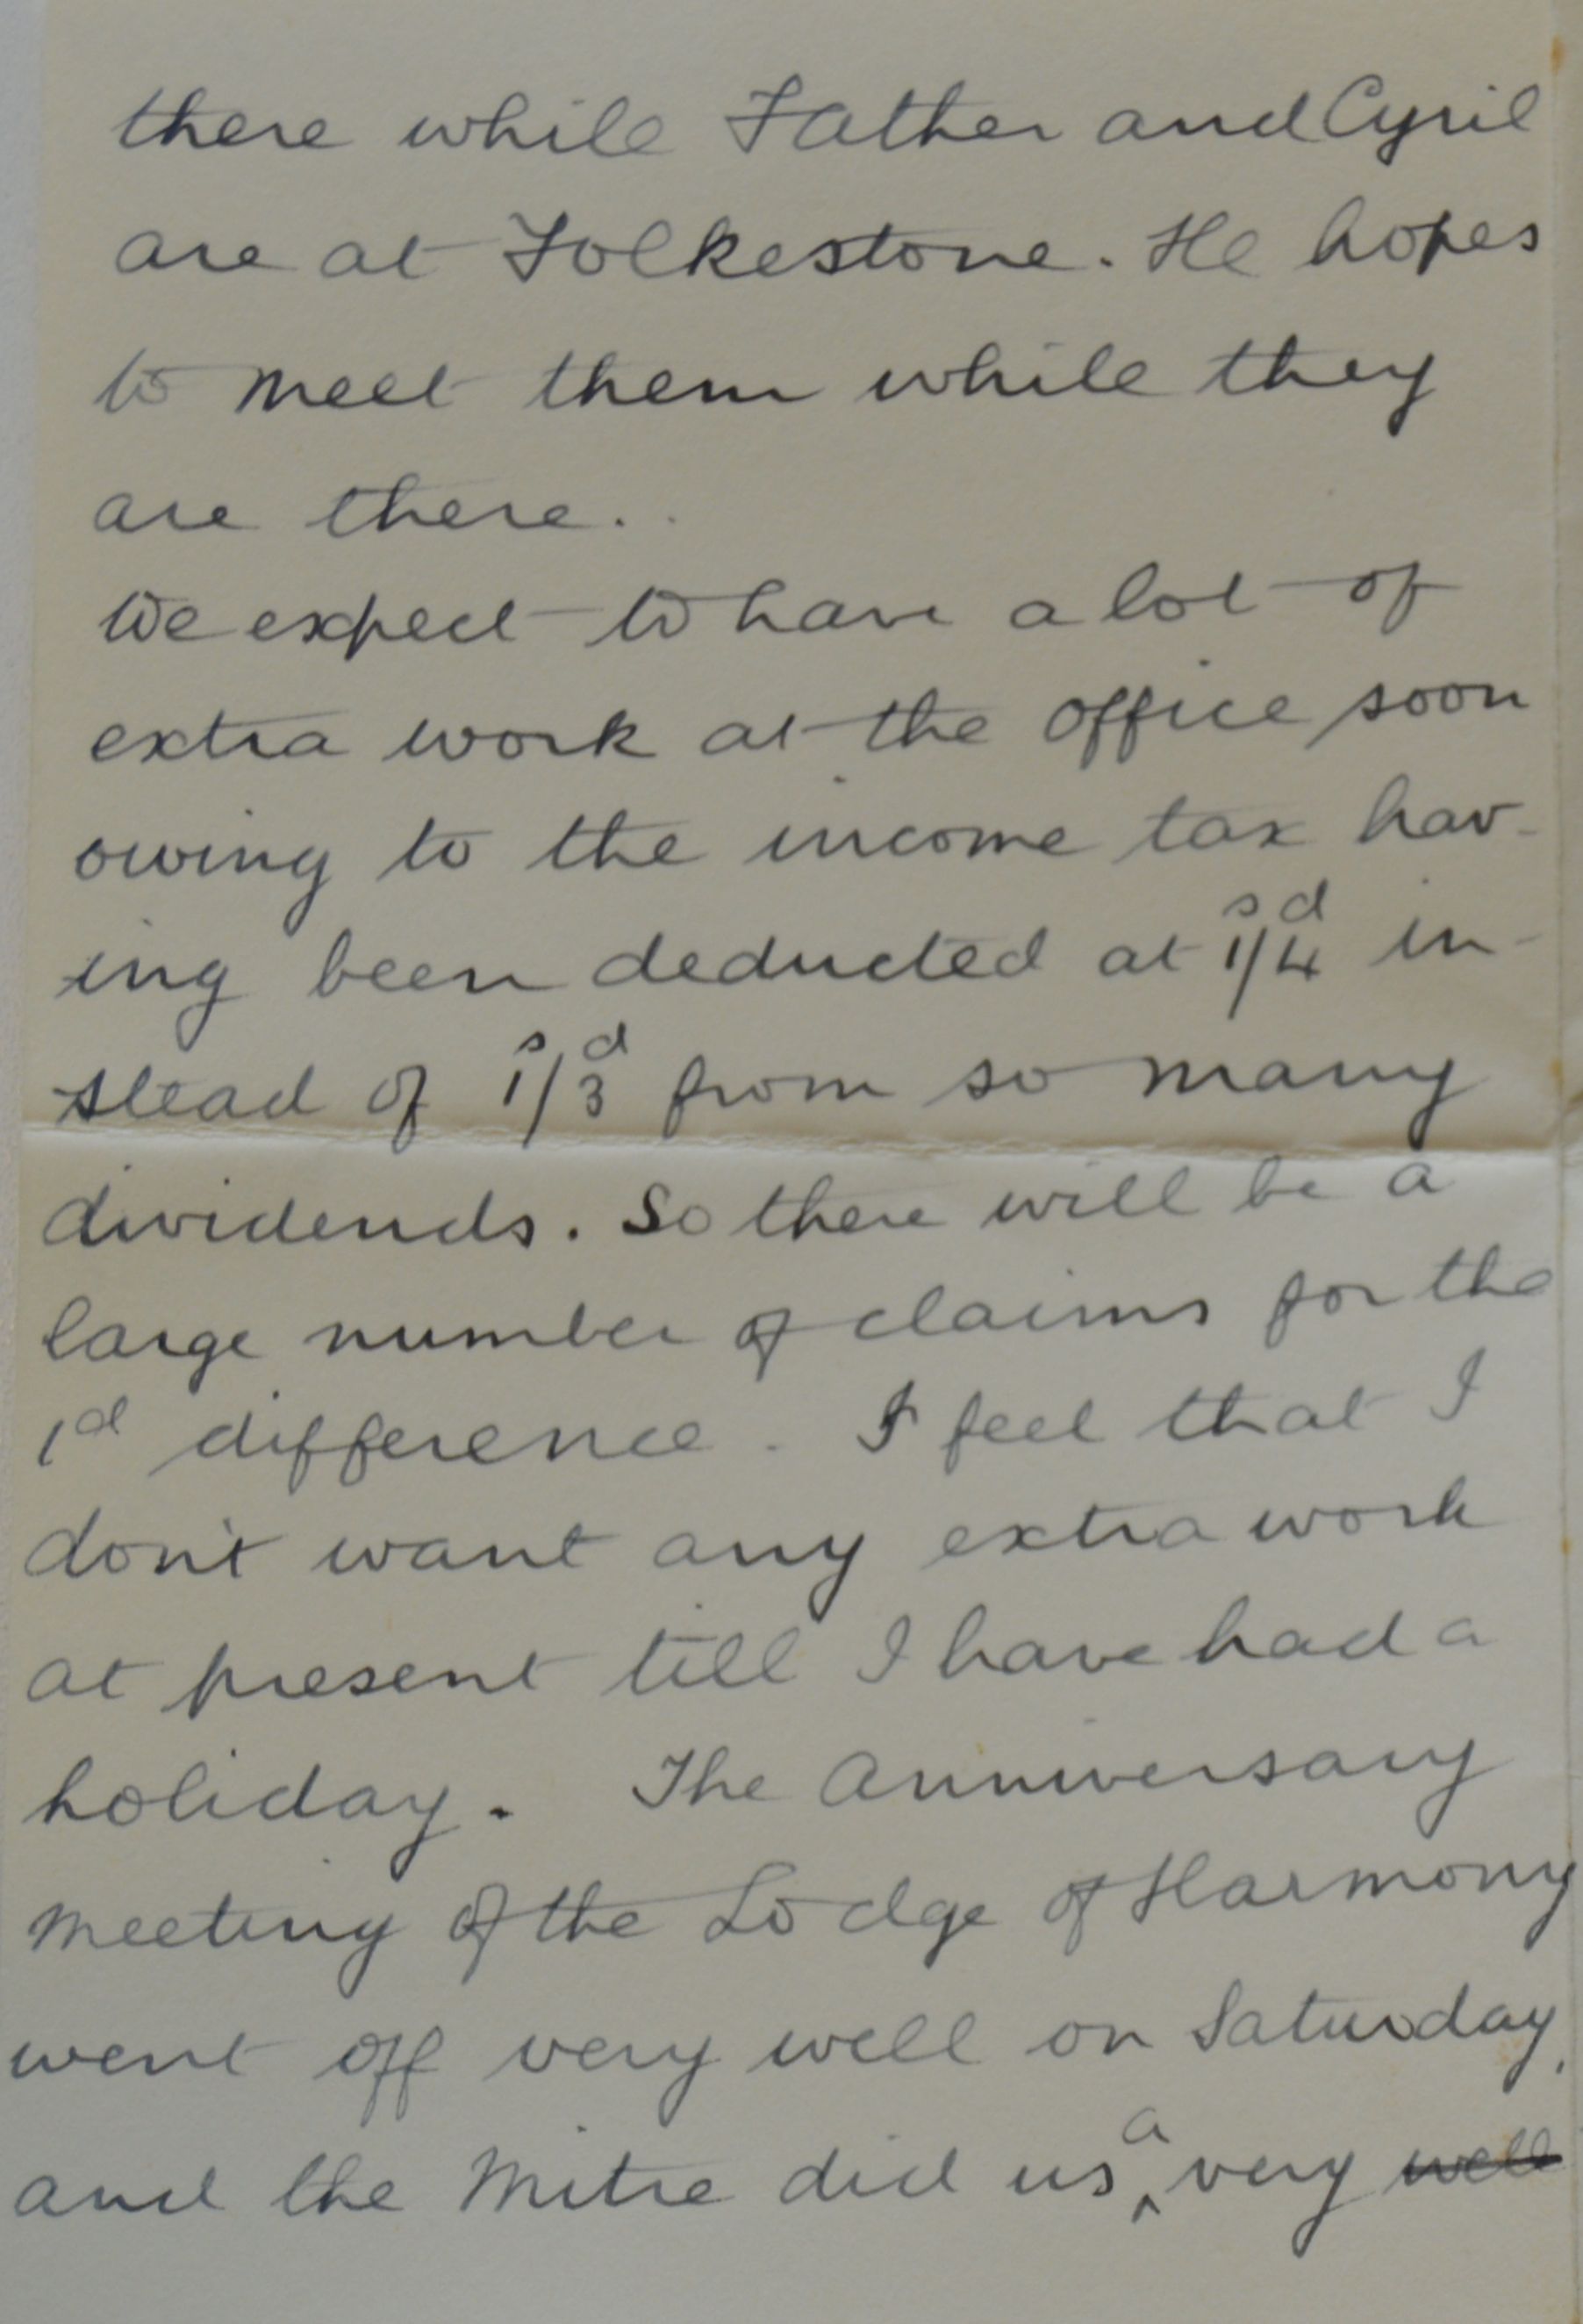 there while Father and Cyril
are at Folkestone. He hopes
to meet them while they
are there.
We expect to have a lot of
extra work at the office soon
owing to the income tax hav-
ing been deducted at 1s/4d in-
stead of 1s/3d from so many
dividends. So there will be a
large number of claims for the
1d difference. I feel that I
don't want any extra work
at present till I have had a
holiday. The Anniversary
meeting of the Lodge of Harmony
went off very well on Saturday,
and the Mitre did us a very well